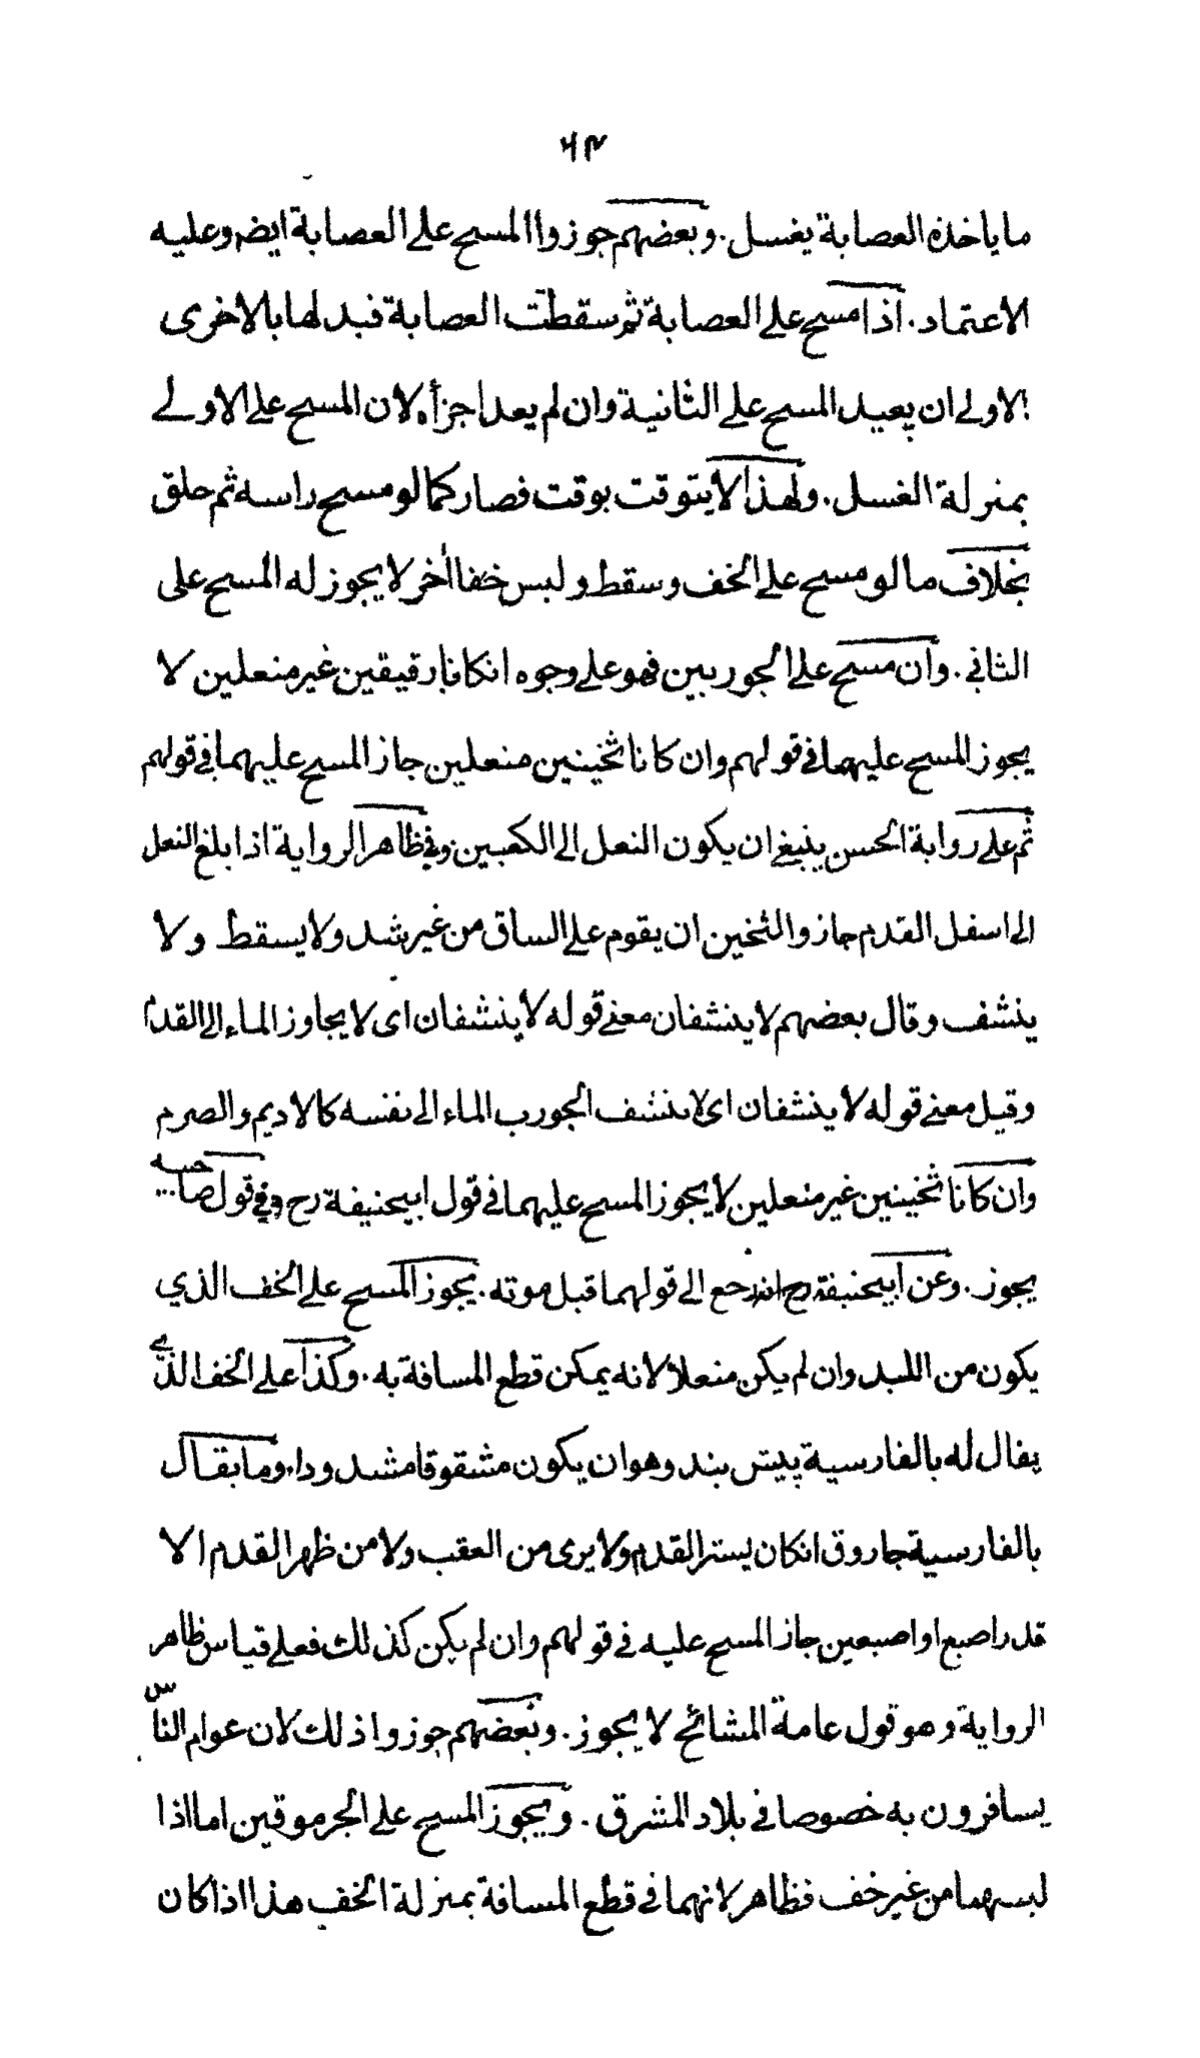 ٦٣
ما ياخذه العصابة يغسل. وبعضهم جوزوا المسح على العصابة ايضم وعليه
الاعتماد. اذا مسح على العصابة ثم سقطت العصابة فبدلها بالاخرى
الاولى ان يعيد المسح على الثانية وان لم يعد اجزأه لان المسح على الاولے
بمنزلة الغسل. ولهذا لا يتوقت بوقت فصار كما لو مسح راسه ثم حلق
بخلاف ما لو مسح على الخف وسقط ولبس خفا اٰخر لا يجوز له المسح على
الثاني. وان مسح على الجوربين فهو على وجوه انكانا رقيقين غير منعلين لا
يجوز المسح عليهما في قولهم وان كانا ثخينين منعلين جاز المسح عليهما في قولهم
ثم على رواية الحسن ينبغي ان يكون النعل الى الكعبين وفي ظاهر الرواية اذا بلغ النعل
الى اسفل القدم جاز والثخين ان يقوم على الساق من غير شد ولا يسقط ولا
ينشف وقال بعضهم لا ينشفان معنے قوله لا ينشفان اى لا يجاوز الماء الى القدم
وقيل معنے قوله لا ينشفان اى لا ينشف الجورب الماء الى نفسه كالاديم والصرم
وان كانا ثخينين غير منعلين لا يجوز المسح عليهما في قول ابيحنيفة رح وفي قول صاحبيه
يجوز. وعن ابيحنيفة رح انه رجع الى قولهما قبل موته. يجوز المسح على الخف الذي
يكون من اللبد وان لم يكن منعلا لانه يمكن قطع المسافة به. وكذا على الخف الذے
يقال له بالفارسية پيش بند وهو ان يكون مشقوقا مشدودا. وما يقال
بالفارسية جاروق انكان يستر القدم ولا يرى من العقب ولا من ظهر القدم الا
قدر اصبع او اصبعين جاز المسح عليه في قولهم وان لم يكن كذلك فعلى قياس ظاهر
الرواية وهو قول عامة المشائخ لا يجوز. وبعضهم جوزوا ذلك لان عوام الناس
يسافرون به خصوصا في بلاد المشرق. ويجوز المسح على الجرموقين اما اذا
لبسهما من غير خف فظاهر لانهما في قطع المسافة بمنزلة الخف هذا اذا كان